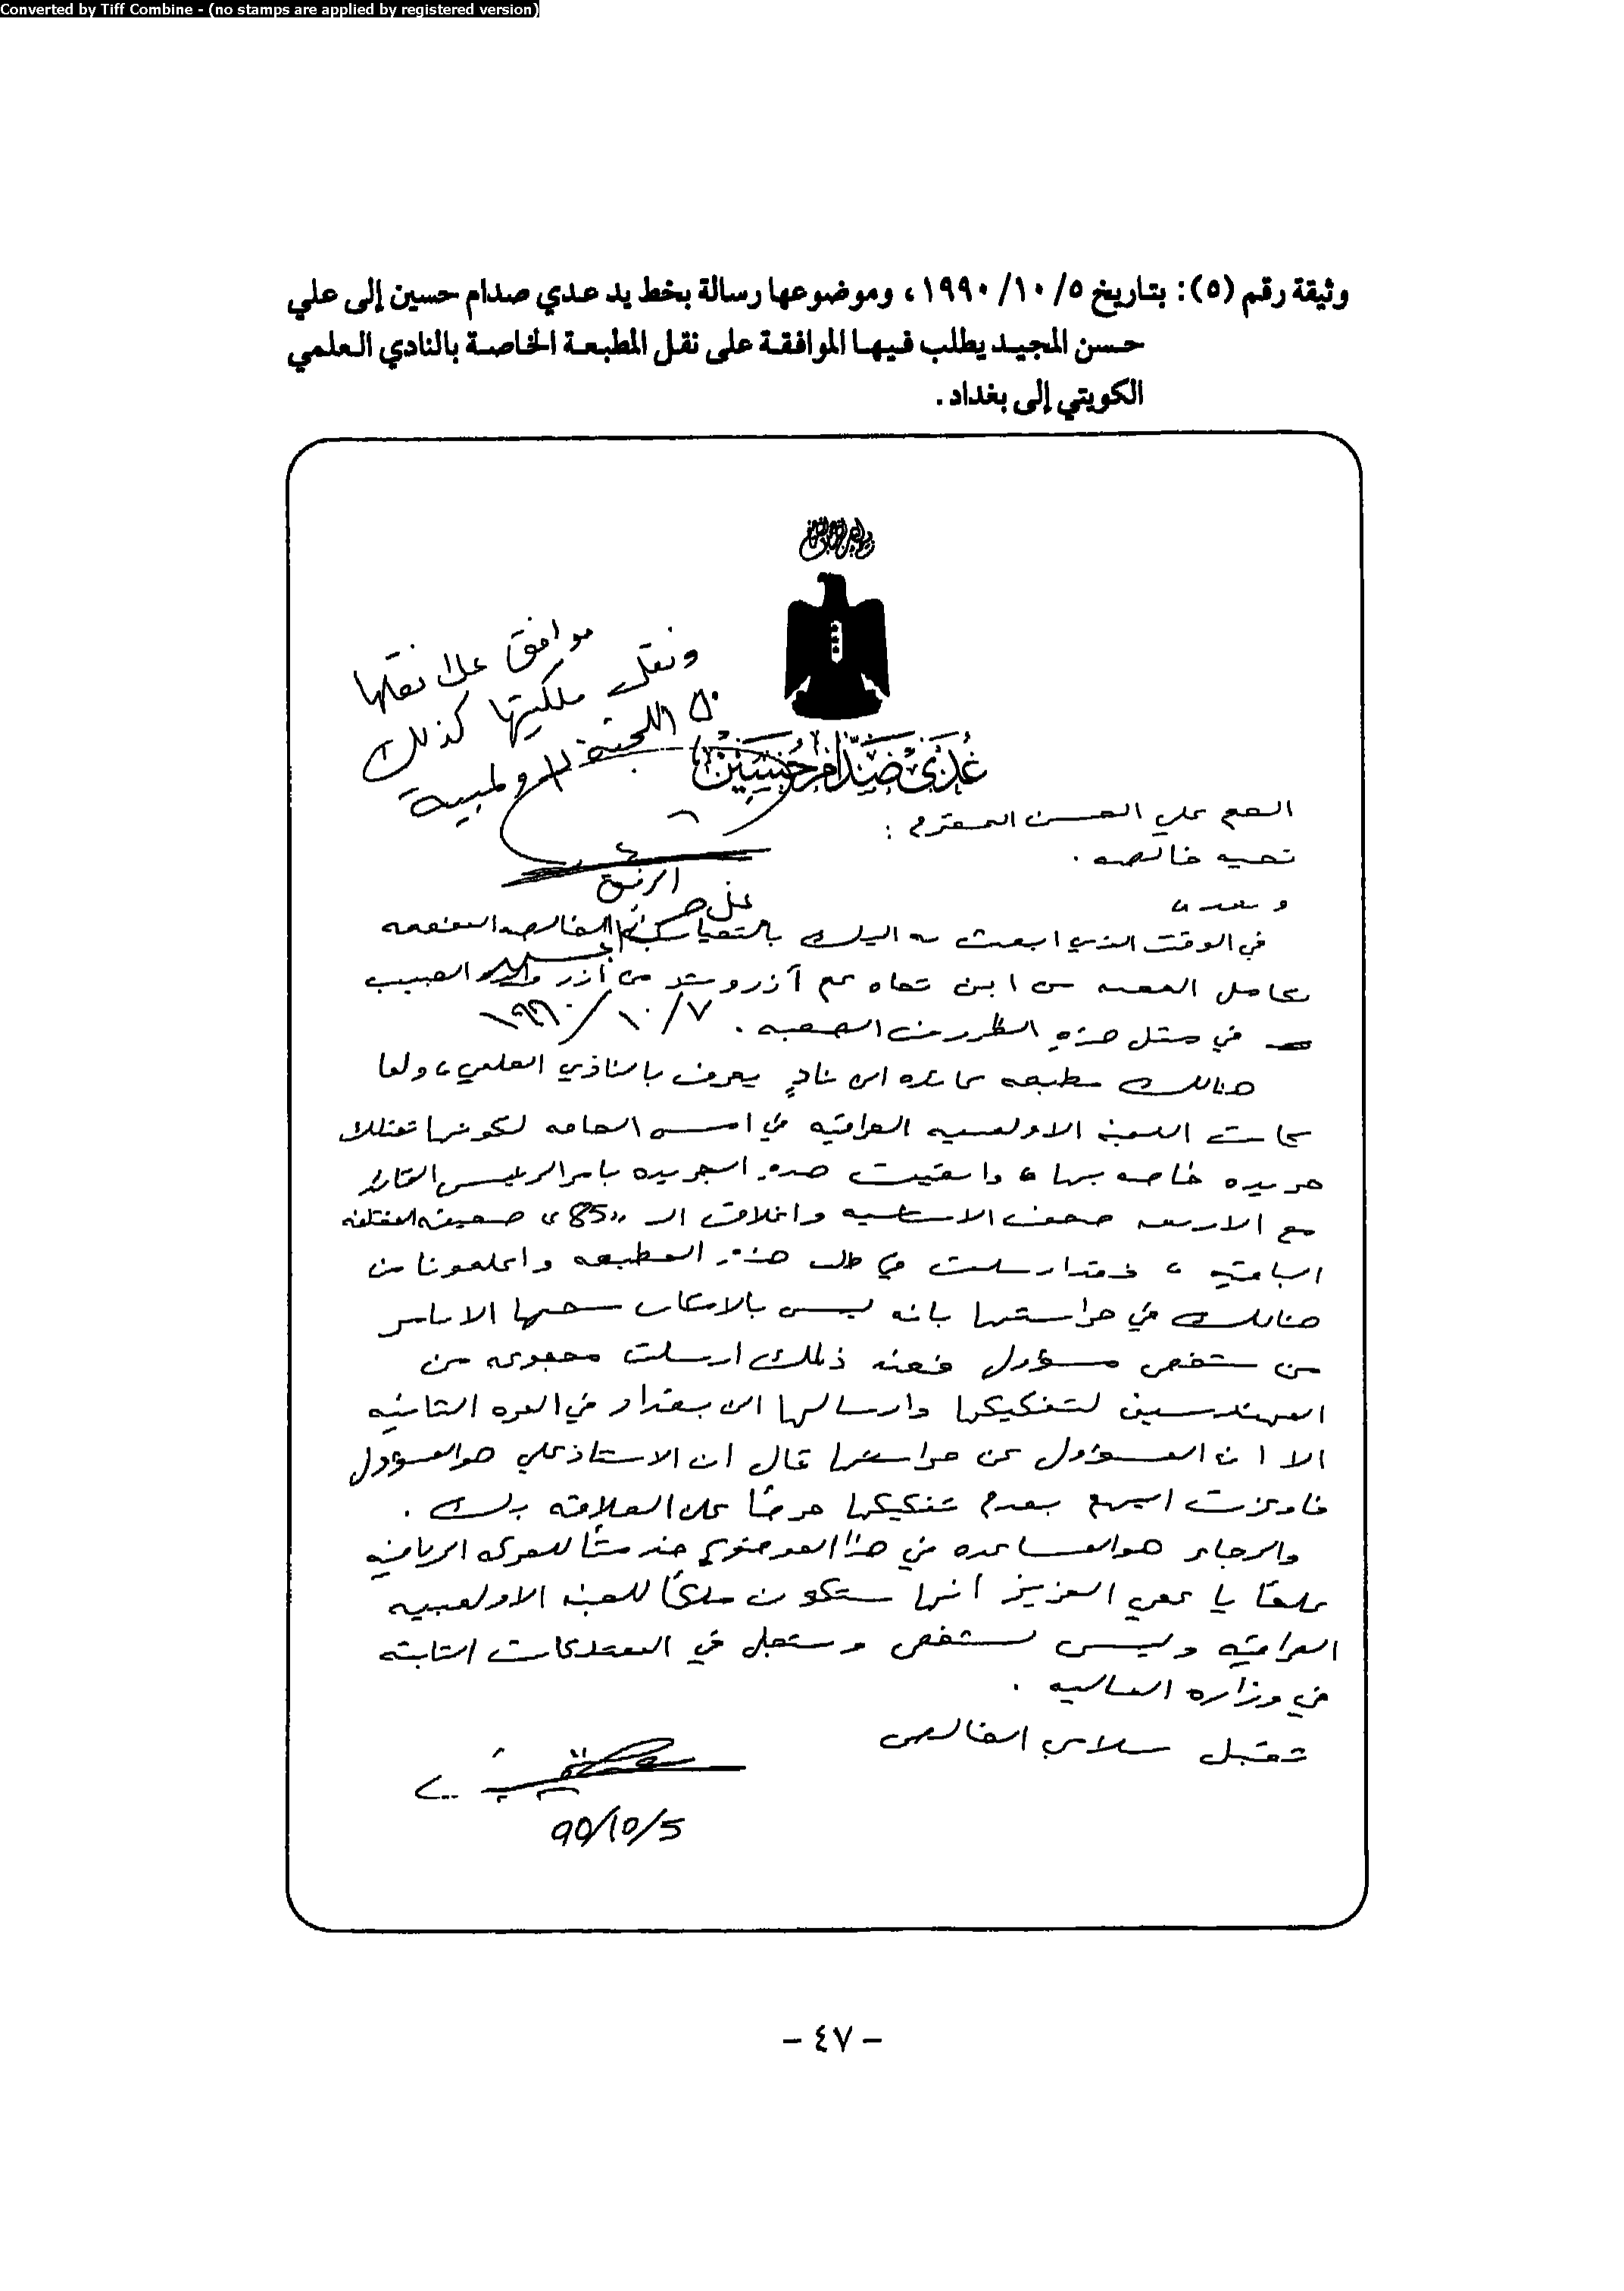 Converted by Tiff Combine - (no stamps are applied by registered version)
وثيقة رقم (٥): بتاريخ ٥/ ١٠/ ١٩٩٠، وموضوعها رسالة بخط يد عدي صدام حسين إلى علي
حسن المجيد يطلب فيها الموافقة على نقل المطبعة الخاصة بالنادي العلمي
الكويتي إلى بغداد.
عُدَيْ صَدَّام حُسَيْن
موافق على نقلها
ونقل ملكيتها كذلك
اللجنة الاولمبية
الرفيق
علي حسن
المجيد
١٩٩٠/١٠/٧
العم علي الحسن المحترم :
تحيه خالصه .
وبعد ،
في الوقت الذي ابعث به اليك بالتحيات الخالصه المفعمه
بكامل المحبه من ابن تجاه عم آزر وشد من أزر والده الحبيب
في مثل هذه الظروف الصعبه .
هنالك مطبعه عائده الى نادٍ يعرف بالنادي العلمي ، ولما
كانت اللجنه الاولمبيه العراقيه في امس الحاجه لكونها تمتلك
جريده خاصه بها ، وابقيت هذه الجريده بامر الرئيس القائد
مع الاربعه صحف الاساسيه واغلاق الـ "85" صحيفه المختلفه
الباقيه ، فقد ارسلت في طلب هذه المطبعه واعلمونا من
هنالك في حراستها بانه ليس بالامكان سحبها الا بامر
من شخص مسؤول فعند ذلك ارسلت مجموعه من
المهندسين لتفكيكها وارسالها الى بغداد في المره الثانيه
الا ان المسؤول عن حراستها قال ان الاستاذ علي هو المسؤول
فاوعزت اليهم بعدم تفكيكها حرصًا على العلاقه بك .
والرجاء هو المساعده في هذا الموضوع خدمتًا للحركه الرياضيه
علمًا يا عمي العزيز أنها ستكون ملكًا للجنه الاولمبيه
العراقيه وليس لشخص وستسجل في الممتلكات الثابته
في وزاره الماليه .
تقبل سلامي الخالص
90/10/5
- ٤٧ -